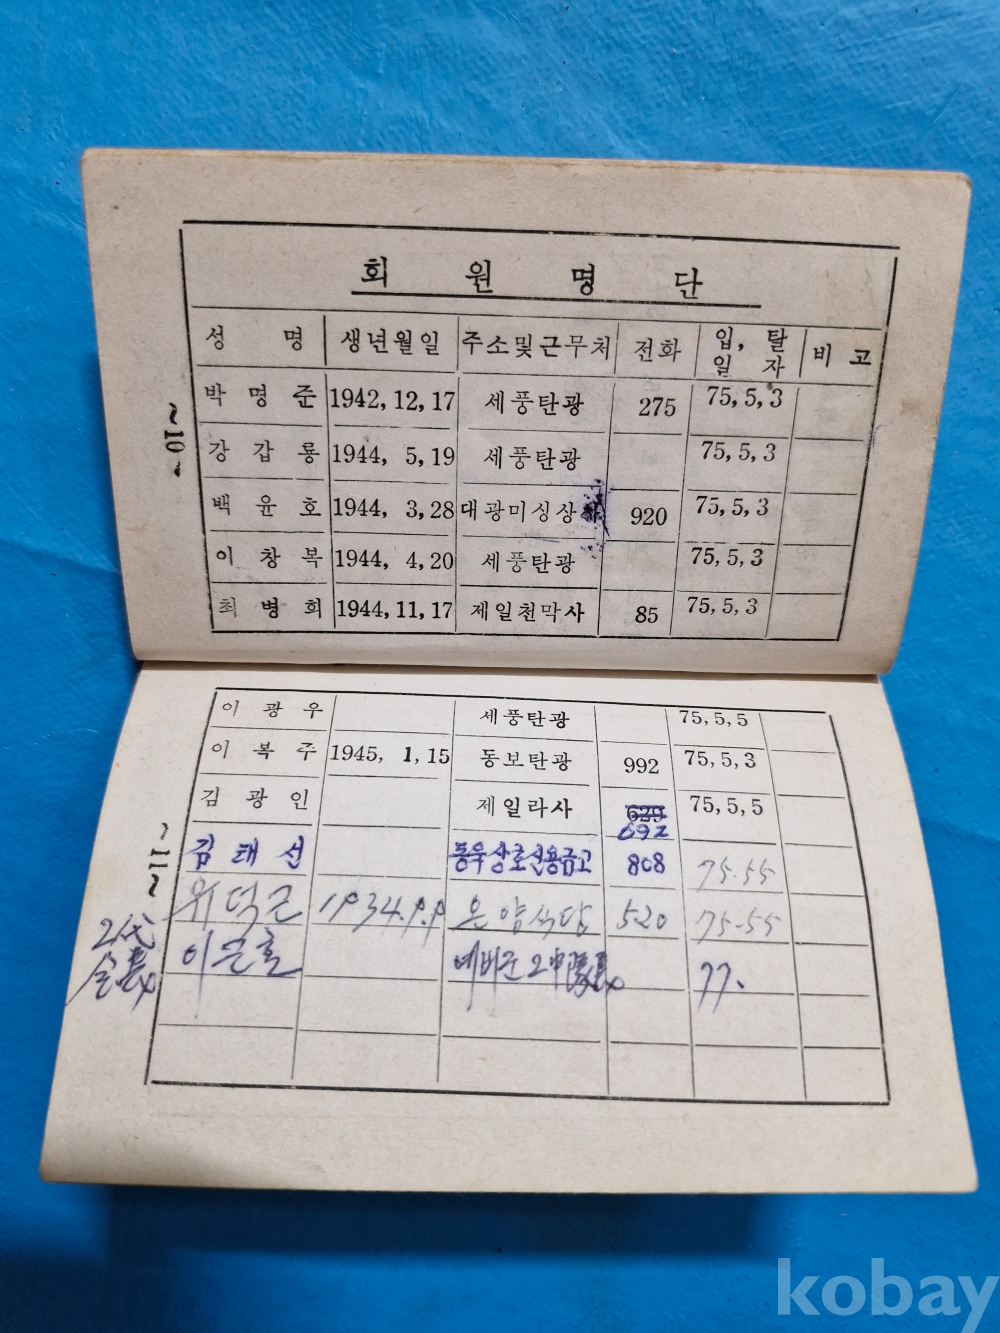 회 원 명 단
성 명 생년월일 주소및근무처 전화 입, 탈 일 자 비 고
박 명 준 1942, 12, 17 세풍탄광 275 75, 5, 3
강 갑 룡 1944, 5, 19 세풍탄광 75, 5, 3
백 윤 호 1944, 3, 28 대광미싱상사 920 75, 5, 3
이 창 복 1944, 4, 20 세풍탄광 75, 5, 3
최 병 희 1944, 11, 17 제일천막사 85 75, 5, 3
~10~
이 광 우 세풍탄광 75, 5, 5
이 복 주 1945, 1, 15 동보탄광 992 75, 5, 3
김 광 인 제일라사 629 692 75, 5, 5
김 태 선 동욱상호신용금고 808 75.55
위덕근 1934.9.9 온양식당 520 75-55
2代 이은호 예비군 2中隊長 77.
~11~
kobay